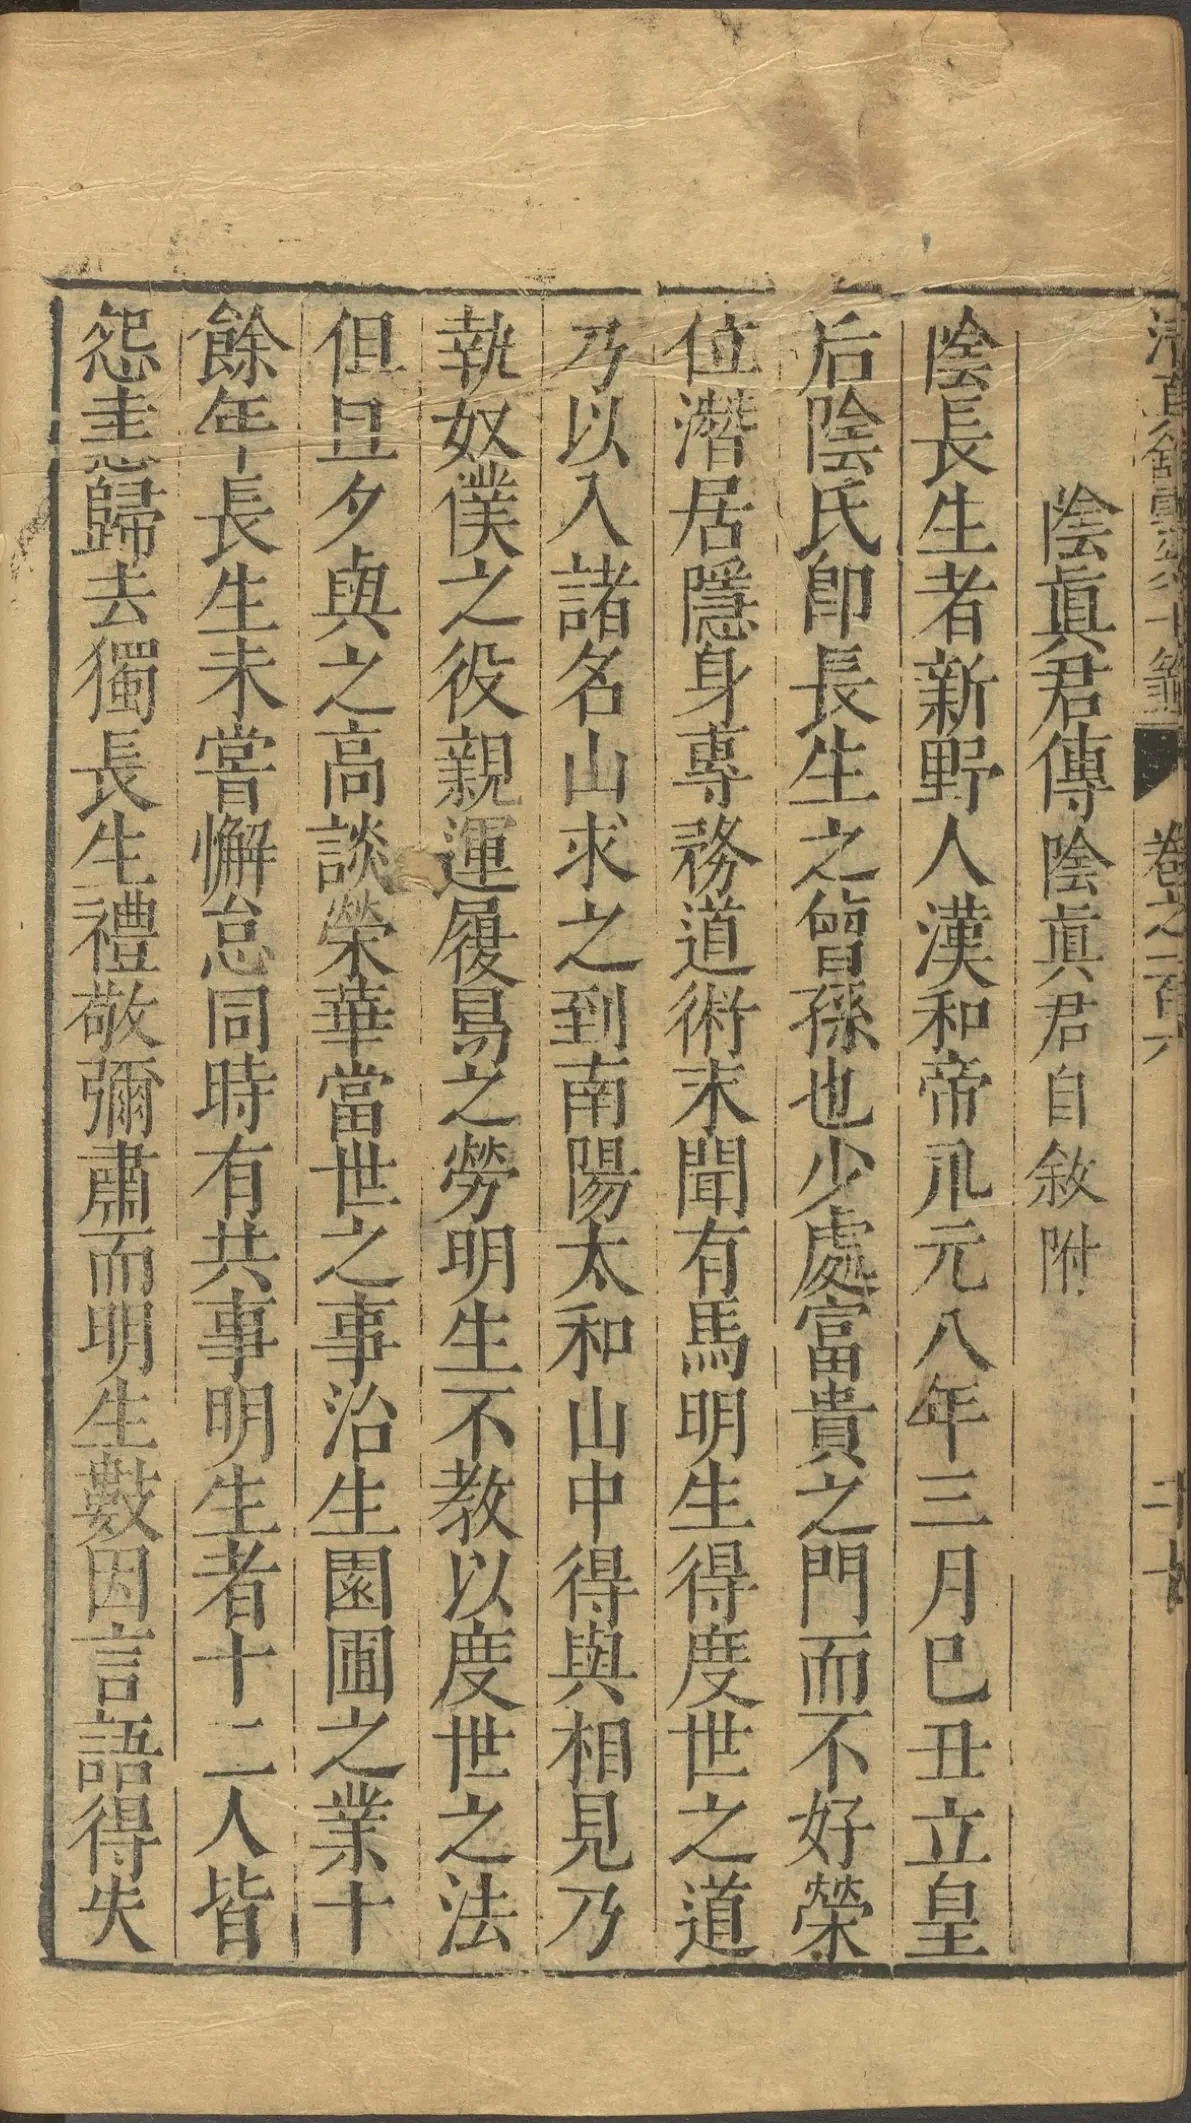 清真館雲笈七籤 卷之一百六 二十七
陰眞君傳陰眞君自敘附
陰長生者新野人漢和帝永元八年三月巳丑立皇
后陰氏卽長生之曾孫也少處富貴之門而不好榮
位潛居隱身專務道術末聞有馬明生得度世之道
乃以入諸名山求之到南陽太和山中得與相見乃
執奴僕之役親運履舄之勞明生不教以度世之法
但旦夕與之高談榮華當世之事治生園圃之業十
餘年長生未嘗懈怠同時有共事明生者十二人皆
怨恚歸去獨長生禮敬彌肅而明生數因言語得失